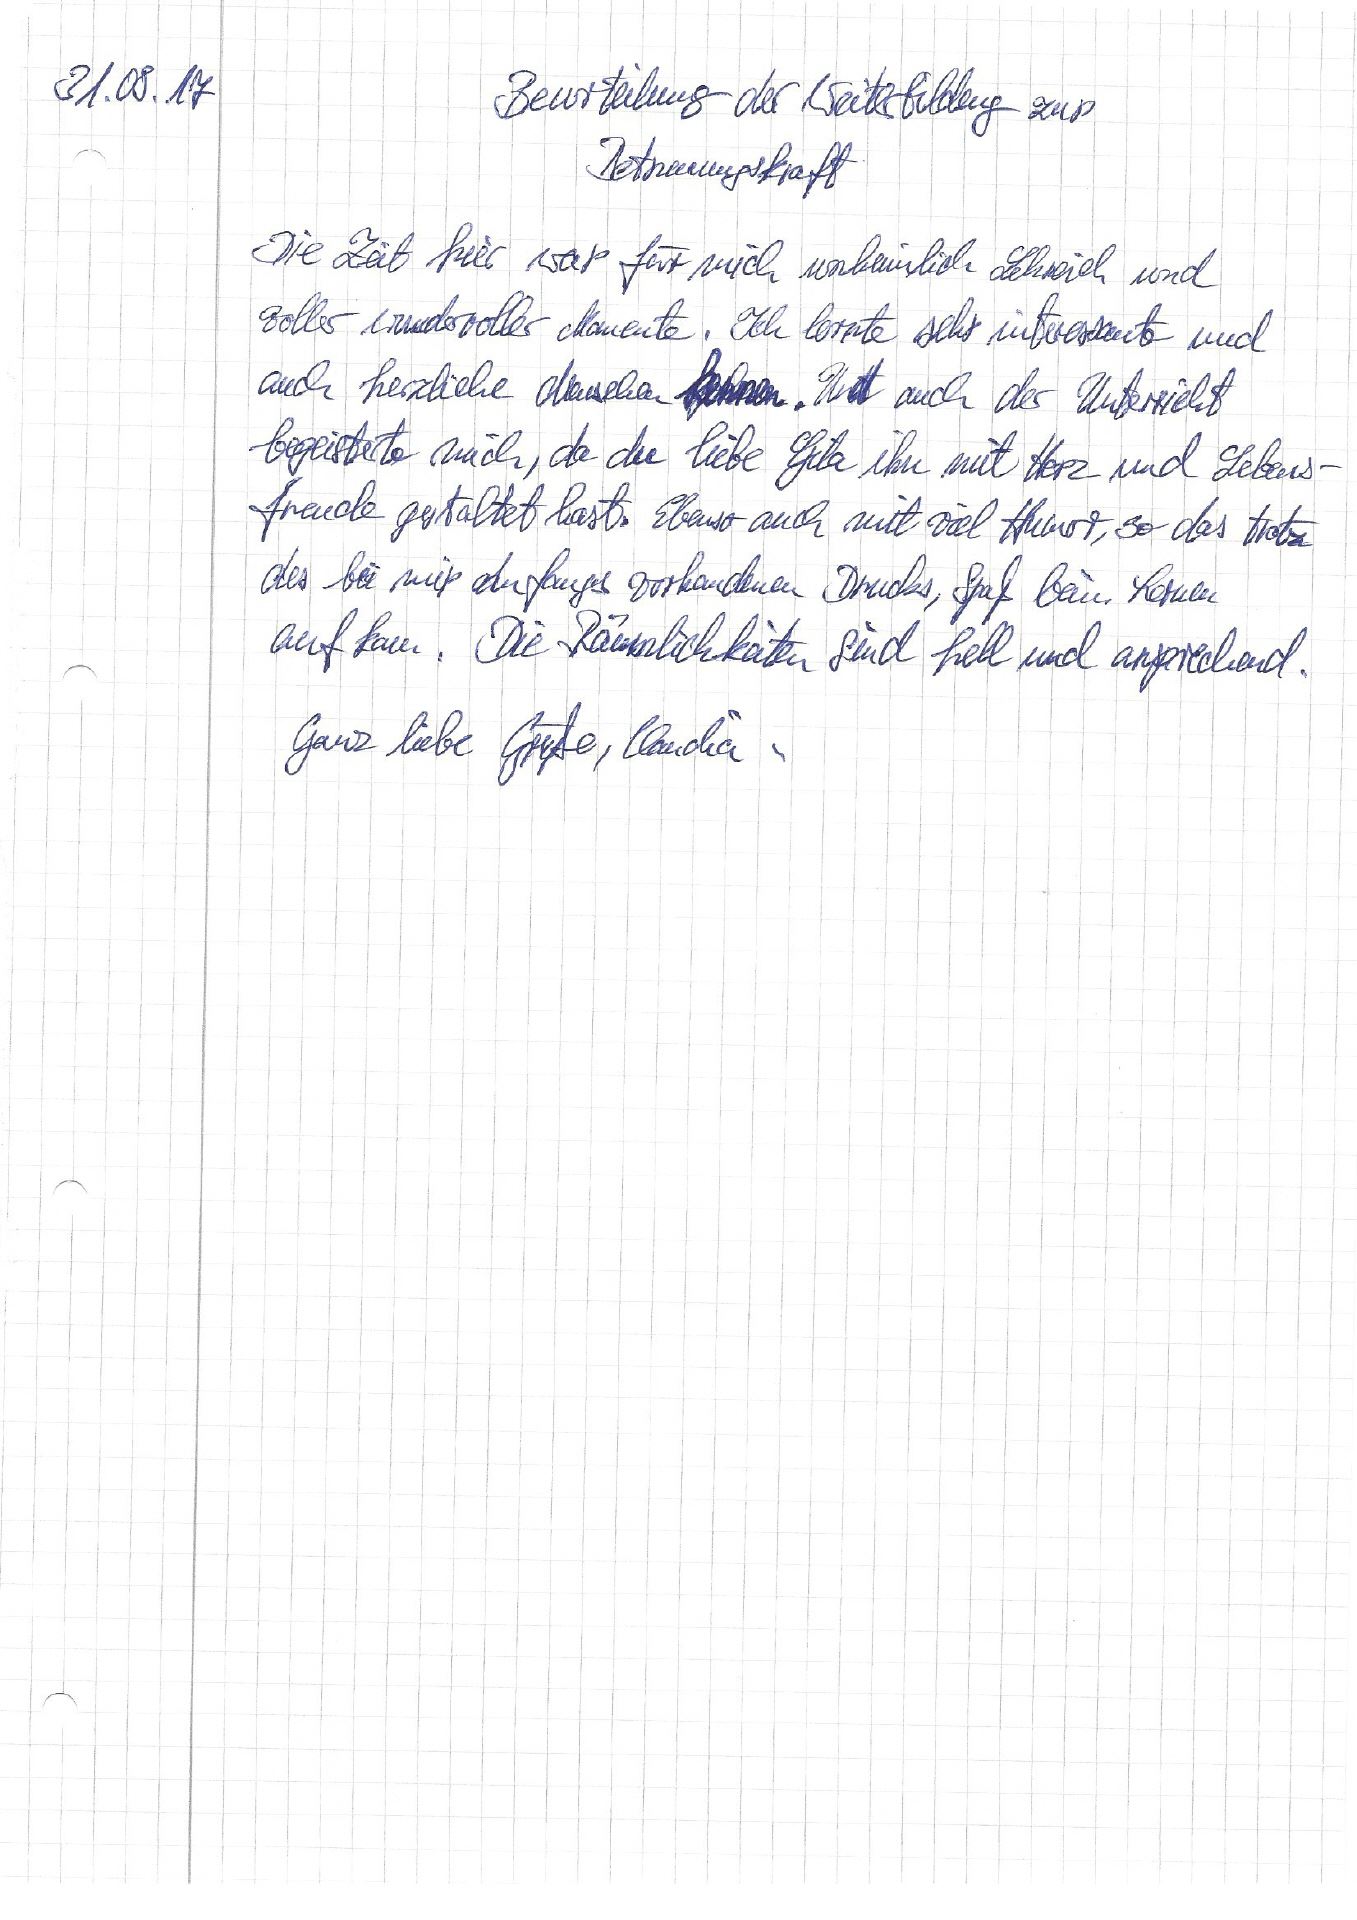 31.08.17
Beurteilung der Weiterbildung zur
Betreuungskraft
Die Zeit hier war für mich unheimlich Lehreich und
voller wundervoller Momente. Ich lernte sehr interessante und
auch herzliche Menschen kennen. Und auch der Unterricht
begeisterte mich, da du liebe Gila ihn mit Herz und Lebens-
freude gestaltet hast. Ebenso auch mit viel Humor, so das trotz
des bei mir Anfangs vorhandenen Drucks, Spaß beim Lernen
auf kam. Die Räumlichkeiten sind hell und ansprechend.
Ganz liebe Grüße, Claudia